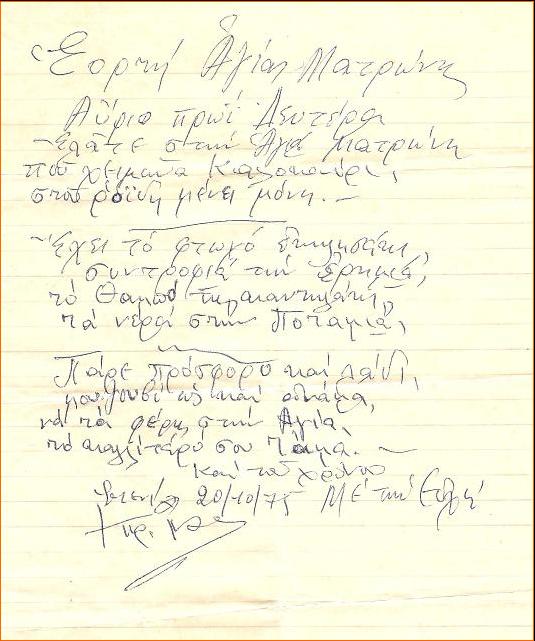 Ἑορτή Ἁγίας Ματρώνης
Αὔριο πρωί Δευτέρα
Ἐλᾶτε στήν Ἁγιά Ματρώνη
πού χειμῶνα Καλοκαίρι,
στοῦ μένει μόνη. –
Ἔχει τό φτωχό ἐκκλησάκι,
συντροφιά τήν Ἐρημιά,
τό Θαμπό της
τά νερά στήν Ποταμιά,
Πάρε πρόσφορο καί λάδι,
καί
νά τά φέρῃς στήν Ἁγία,
τό σου Τάμα. –
Καί τοῦ χρόνου
20/10/75 Μέ τήν Εὐχή